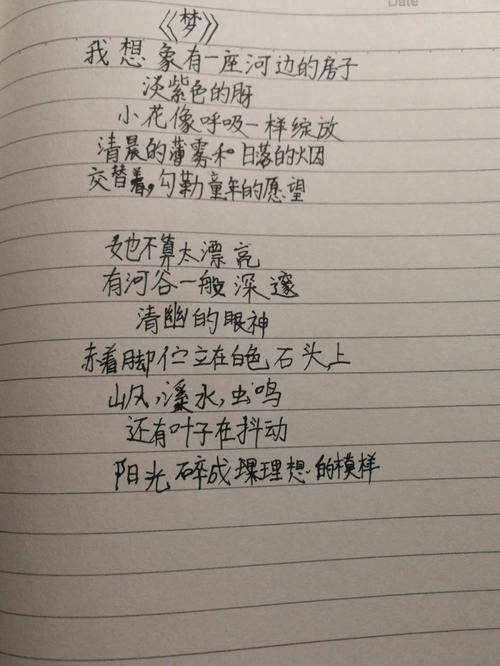 Date
《梦》
我想象有一座河边的房子
淡紫色的
小花像呼吸一样绽放
清晨的薄雾和日落的烟
交替着,勾勒童年的愿望
她不算太漂亮
有河谷一般深邃
清幽的眼神
赤着脚伫立在白色石头上
山风,溪水,虫鸣
还有叶子在抖动
阳光碎成理想的模样